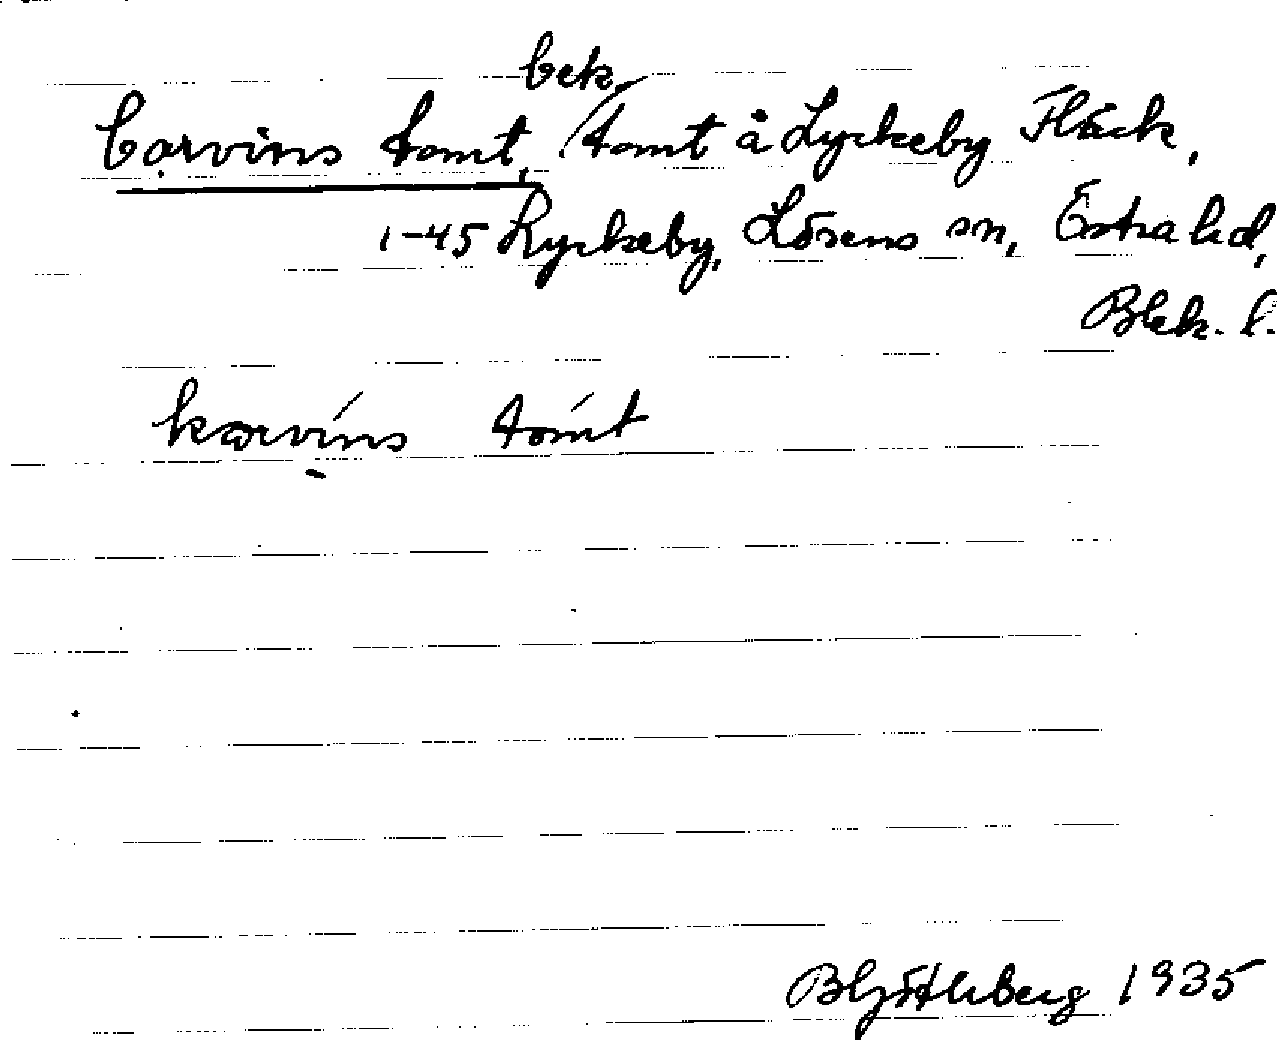 bek.
Corvins tomt, tomt å Lyckeby Fläck,
1-45 Lyckeby, Lösens sn, Östra hd,
Blek. l.
korvins tomt
1935